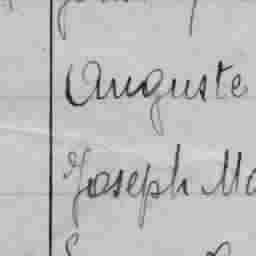 Auguste
Joseph Ma